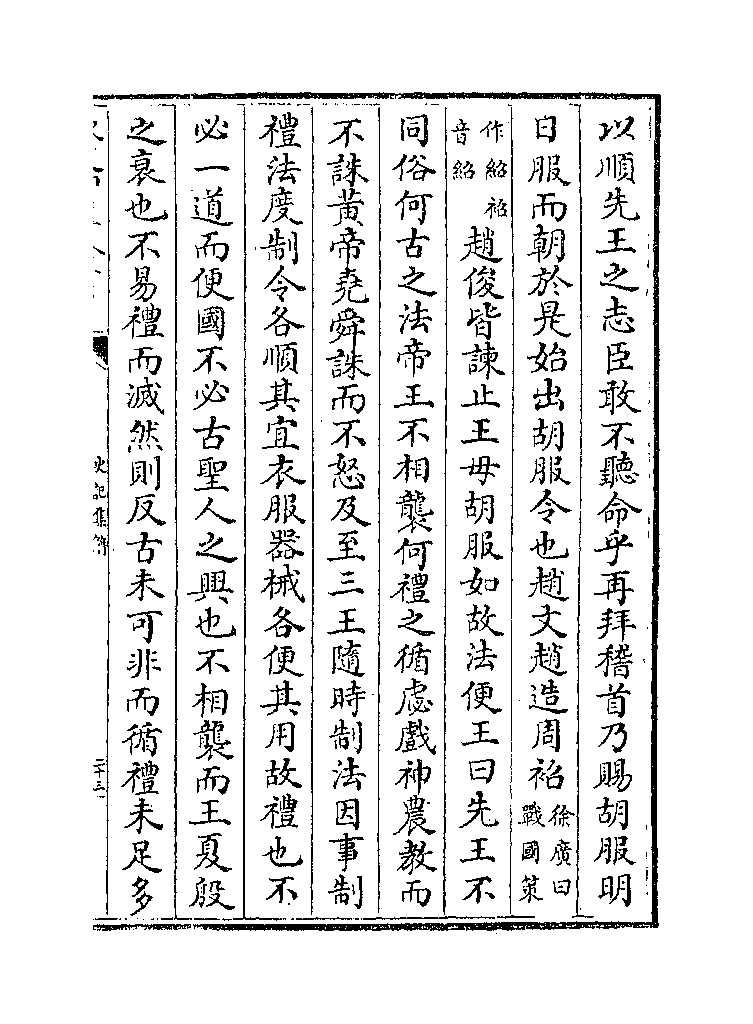 以順先王之志臣敢不聽命乎再拜稽首乃賜胡服明
日服而朝於是始出胡服令也趙文趙造周袑徐廣曰戰國策
作紹袑音紹趙俊皆諫止王毋胡服如故法便王曰先王不
同俗何古之法帝王不相襲何禮之循虙戲神農教而
不誅黃帝堯舜誅而不怒及至三王隨時制法因事制
禮法度制令各順其宜衣服器械各便其用故禮也不
必一道而便國不必古聖人之興也不相襲而王夏殷
之衰也不易禮而滅然則反古未可非而循禮未足多
史記集解
二十三